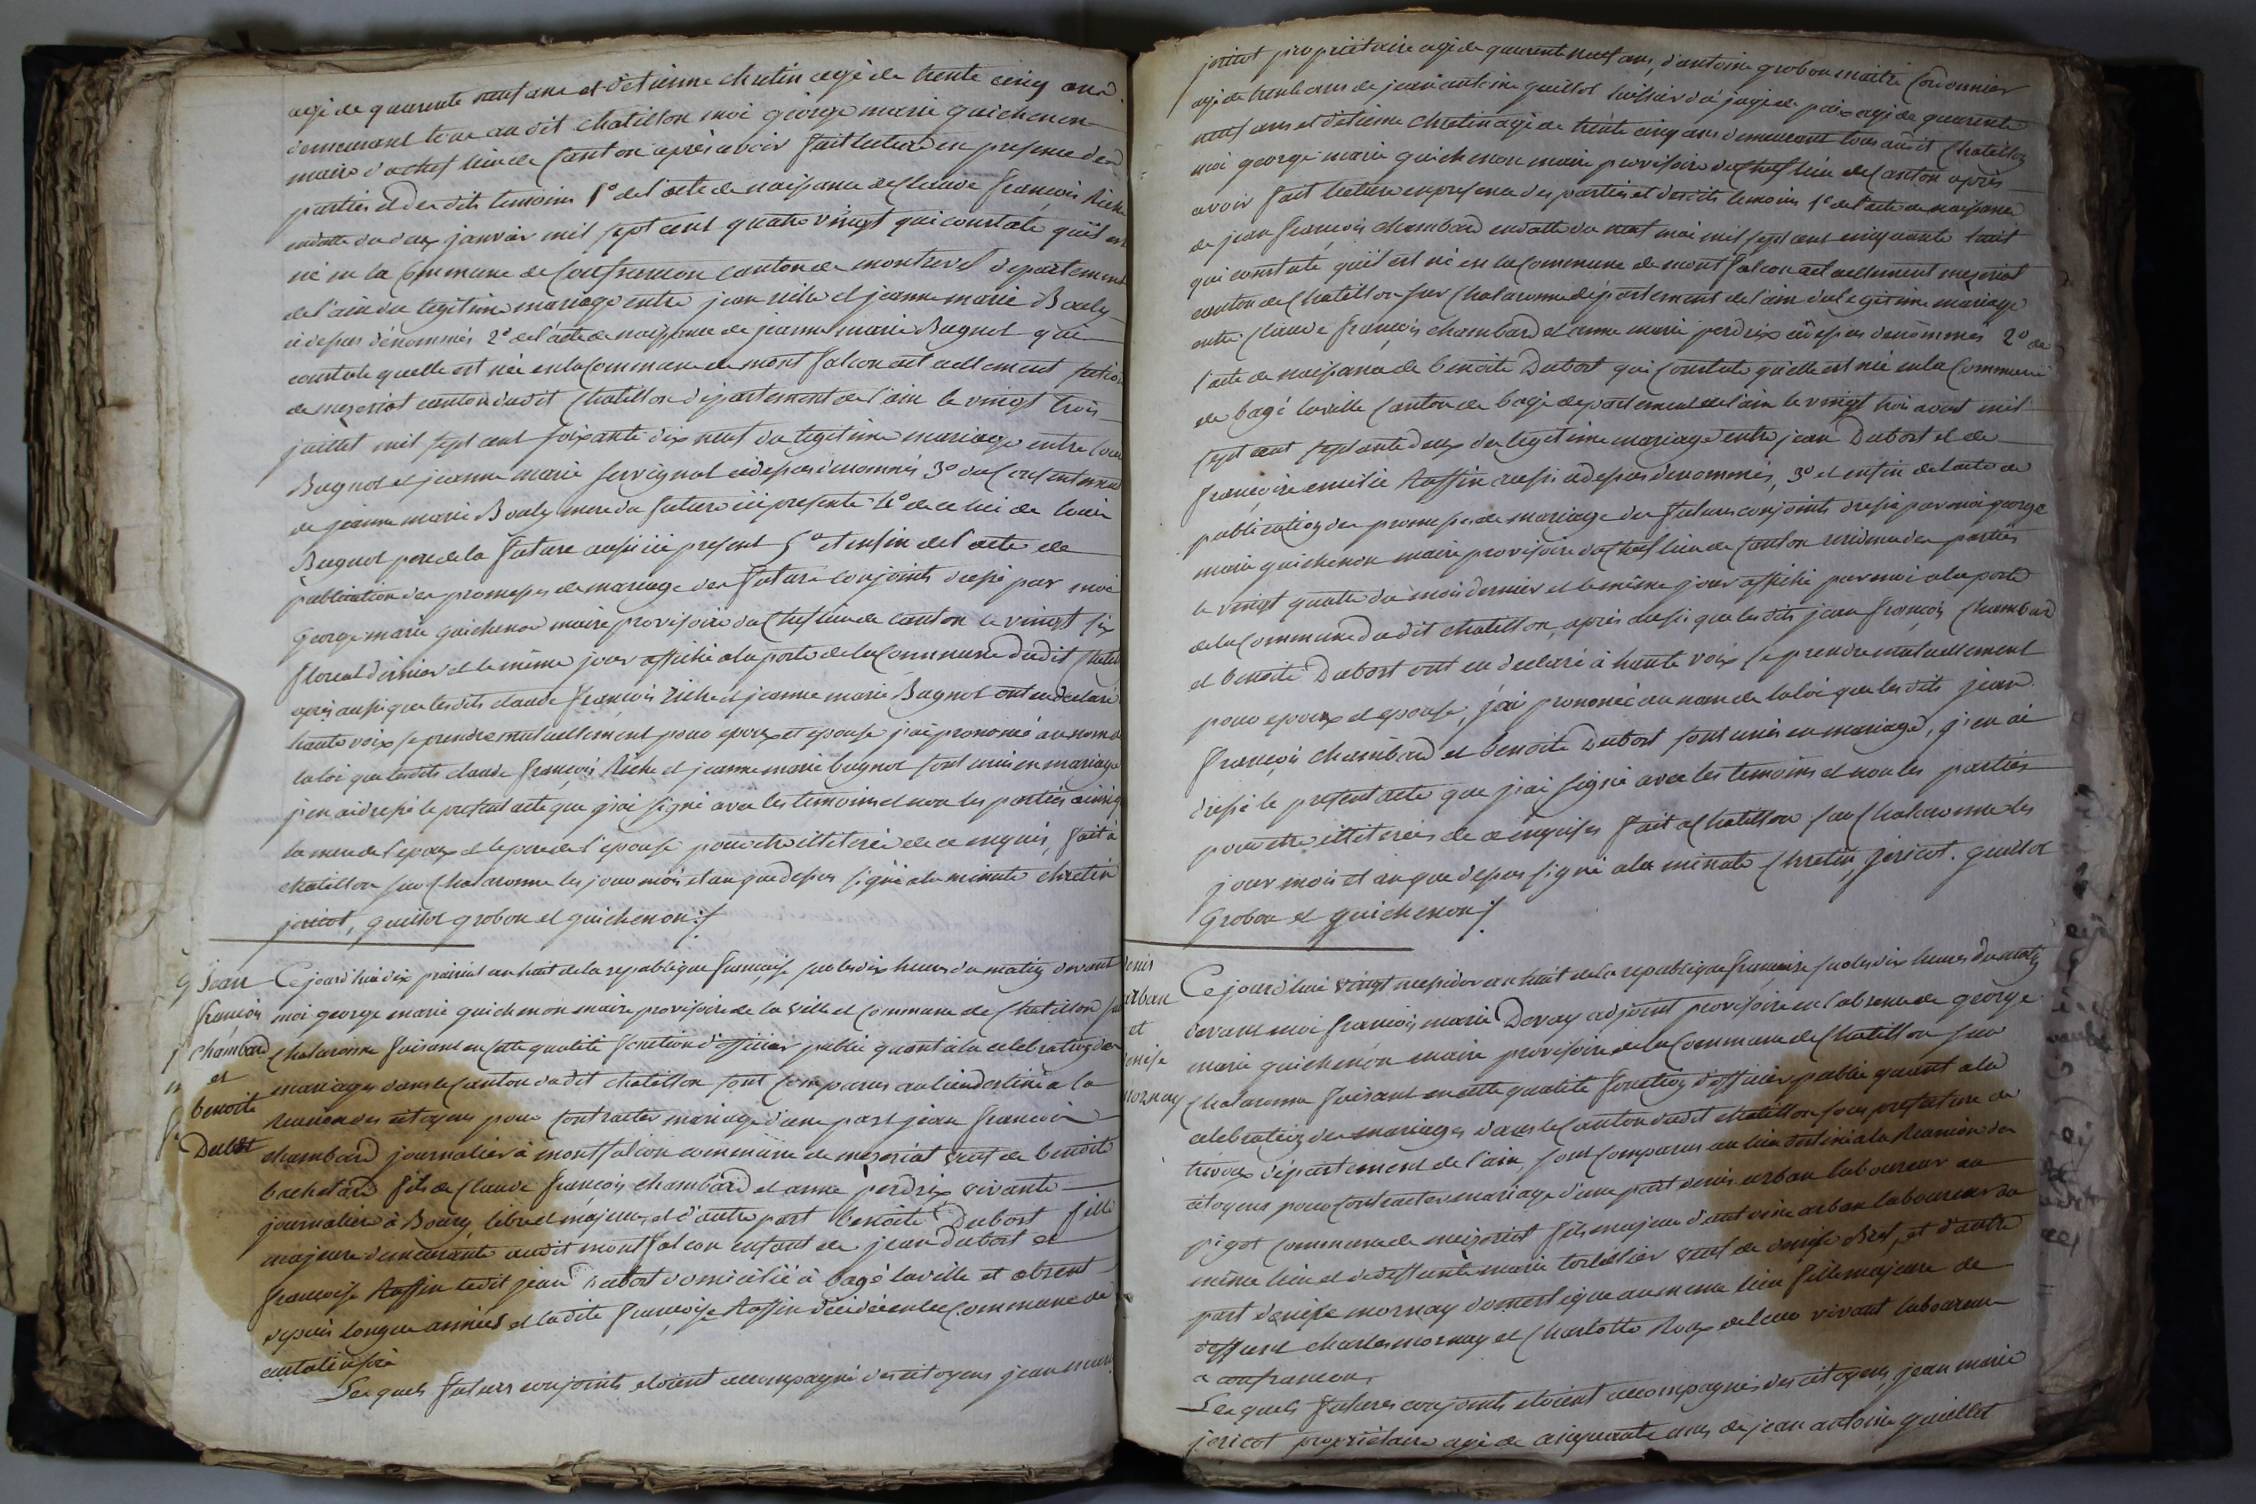 agé de quarente neuf ans et d'etienne chretin agé de trente cinq ans
demeurant tous au dit chatillon moi george marie guichenon
maire d'achef lieu de Canton après avoir fait lecture en presence des
parties et des dits temoins 1° de l'acte de naissance de Claude françois Riche
en datte du deux janvier mil sept cent quatre vingt qui constate qu'il est
né en la Commune de Confrancon canton de montrevel departement
de l'ain du legitime mariage entre jean riche et jeanne marie Bouly
ci depas dénommés 2° de l'acte de naissance de jeanne marie Bugnot qui
constate quelle est née en la Commune de mont falcon actuellement
de mezeriat canton dudit Chatillon departement de l'ain le vingt trois
juillet mil sept cent soixante dix neuf du legitime mariage entre
Bugnot et jeanne marie Servignat cidepas denommés 3° du Consentement
de jeanne marie Bouly mere du futur ici presente 4° de celui de
Bugnot pere de la future aussi ici present 5° et enfin de l'acte de
publication des promesses de mariage des futurs conjoints dressé par moi
George marie guichenon maire provisoire du Chef lieu de canton le vingt six
floreal dernier et le même jour affiché a la porte de la Commune dudit
après aussi que les dits claude françois Riche et jeanne marie Bugnot ont eu déclaré
haute voix se prendre mutuellement pour epoux et epouse j'ai prononcé au nom de
la loi que lesdits claude françois Riche et jeanne marie bugnot sont unis en mariage
j'en ai dressé le present acte que j'ai signé avec les temoins et non les parties ainsi q
la mere de l'epoux et le pere de l'epouse pour etre illeteré de ce enquis, fait à
chatillon sur Chalaronne les jour mois et an que depas signé a la minute chretin
jericot, guillot grobon et guichenon
Jean
françois
Chambard
et
benoite
Dubost
Cejourd'hui dix prairial an huit de la republique française sur les dix heures du matin devant
moi george marie guichenon maire provisoire de la ville et commune de Chatillon sur
Chalaronne faisant en cette qualité fonction d'officier public quant à la celebration des
mariages dans le Canton dudit chatillon sont Comparus au lieu destiné a la
Reunion des citoyens pour Contracter mariage d'une part jean françois
chambard journalier à montfalcon commune de mezeriat veuf de benoite
bachelard fils de Claude françois chambard et anne perdrix vivante
journalier à Bourg libre et majeur, et d'autre part benoite Dubost fille
majeure demeurante audit mont falcon enfant de jean dubost et
françoise Raffin ledit jean Dubost domicilié à bagé laville et absent
depuis longues années et ladite françoise Raffin décidée en la Commune de

Lesquels futurs conjoints etoient accompagné des citoyens jean marie
jericot propriétaire agé de quarente neuf ans, d'antoine grobon maitre Cordonnier
agé de trente ans de jean antoine guillot huissier du juge de paix agé de quarente
neuf ans et d'etienne chretin agé de trente cinq ans demeurant tous audit Chatillon
moi george marie guichenon maire provisoire du Chef lieu de Canton après
avoir fait lecture en presence des parties et desdits temoins 1° de l'acte de naissance
de jean françois chambard en datte du neuf mai mil sept cent cinquante huit
qui constate qu'il est né en la Commune de mont falcon actuellement mezeriat
canton de Chatillon sur Chalaronne département de l'ain du legitime mariage
entre Claude françois chambard et anne marie perdrix cidepas denommés 2° de
l'acte de naissance de benoite Dubost qui Constate qu'elle est née en la Commune
de bagé laville Canton de bagé departement de l'ain le vingt trois avost mil
sept cent septante deux du legitime mariage entre jean Dubost et de
françoise Raffin aussi cidepas denommés, 3° et enfin de l'acte de
publication des promesses de mariage des futurs conjoints dressé par moi george
marie guichenon maire provisoire du Chef lieu de Canton residence des parties
le vingt quatre du mois dernier et le même jour affiché par moi a la porte
de la Commune dudit chatillon, après aussi que les dits jean françois Chambard
et benoite Dubost ont eu declaré à haute voix se prendre mutuellement
pour epoux et epouse, j'ai prononcé au nom de la loi que les dits jean
françois chambard et benoite Dubost sont unis en mariage, j'en ai
dressé le present acte que j'ai signé avec les temoins et non les parties
pour etre illeterées de ce enquises fait a Chatillon sur Chalaronne les
jour mois et an que depas signé a la minute Chretin, jericot. guillot
Grobon et guichenon
Denis
arban
et
Denise
mornay
Cejourd'hui vingt messidor an huit de la republique française sur les dix heures du matin
devant moi françois marie Devay adjoint provisoire en l'absence de george
marie guichenon maire provisoire de la Commune de Chatillon sur
Chalaronne faisant en cette qualité fonction d'officier public quant a la
celebration des mariages dans le Canton dudit chatillon sous prefecture de
trevoux departement de l'ain, sont Comparus au lieu destiné a la Reunion des
citoyens pour Contracter mariage d'une part denis arban laboureur au
pigot Commune de mezeriat fils majeur d'antoine arban laboureur au
même lieu et de deffunte marie veuf de denise et d'autre
part denise mornay domestique au meme lieu fille majeure de
deffunt charles mornay et Charlotte Roux de leur vivant laboureur
a confrancon.
Lesquels futurs conjoints etoient accompagnés des citoyens jean marie
jericot propriétaire agé de cinquante ans de jean antoine guillot